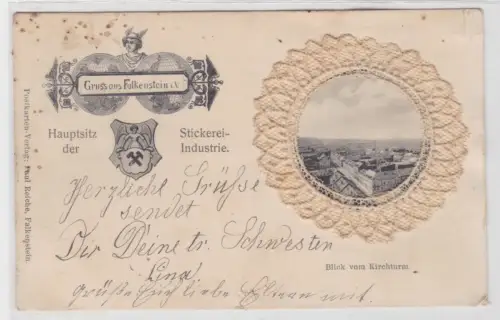 Gruss aus Falkenstein i.V.
Hauptsitz
der
Stickerei-
Industrie.
Postkarten-Verlag: Paul Reiche, Falkenstein.
Blick vom Kirchturm.
Herzliche Grüsse
sendet
Dir Deine tr. Schwester
Lina
grüße Euch liebe Eltern mit.